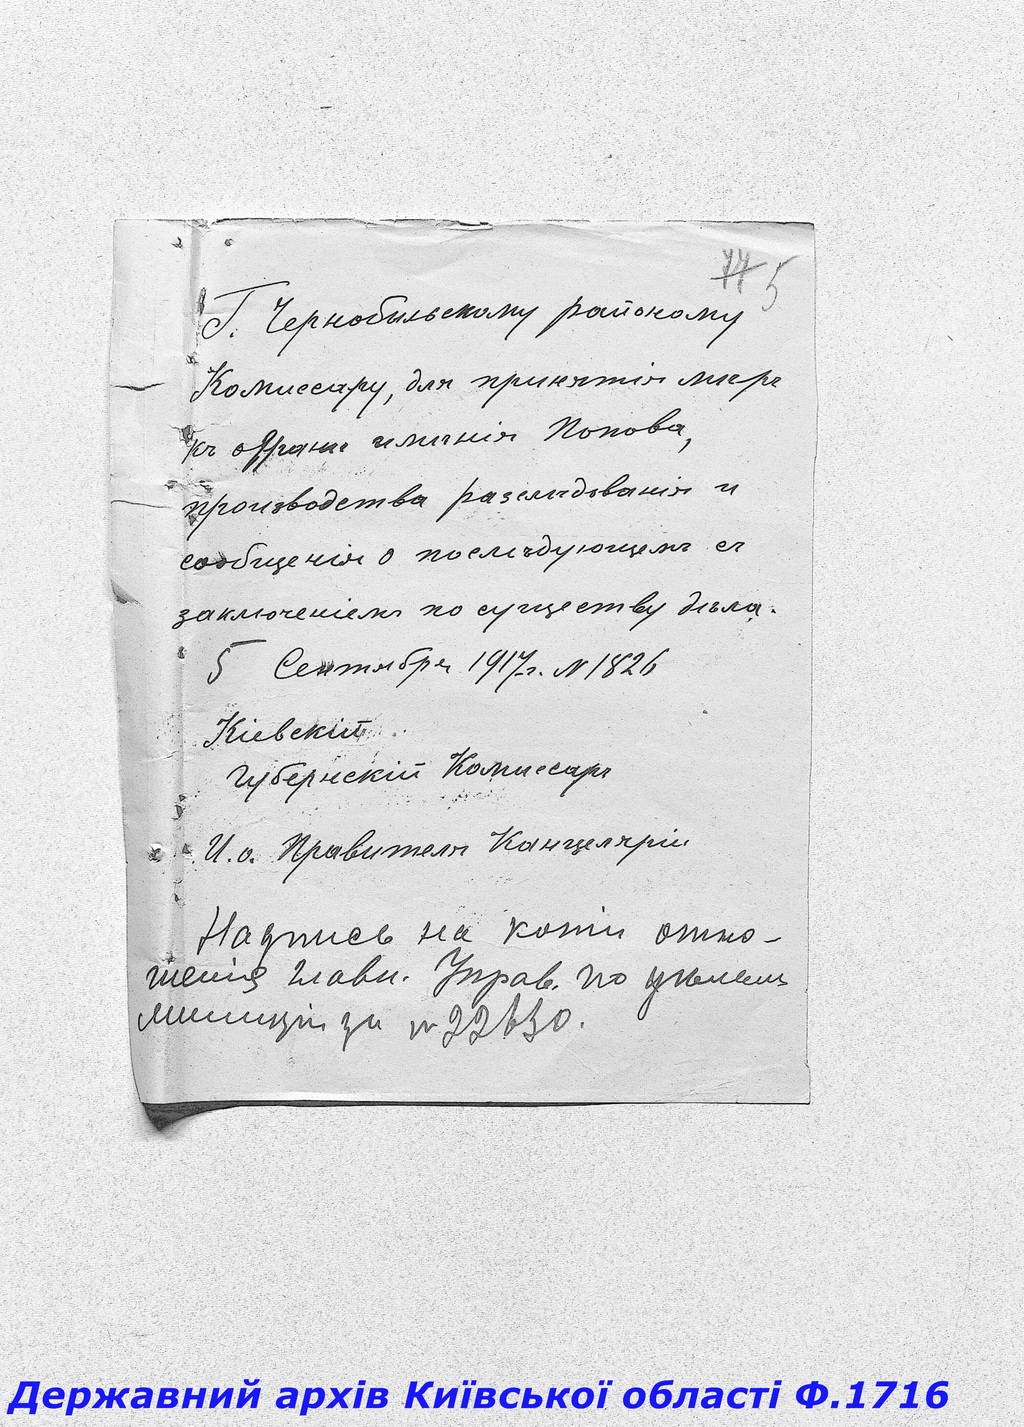 77 5
Г. Чернобыльскому районому
Комиссару, для принятія мѣръ
къ охранѣ имѣнія Попова,
производства разслѣдованія и
сообщенія о послѣдующемъ съ
заключеніемъ по существу дѣла.
5 Сентября 1917 г. № 1826
Кіевскій
Губернскій Комиссаръ
И.о. Правителя Канцеляріи
Надпись на копіи отно-
шенія Главн. Управ. по дѣламъ
Милиціи за № 22630.
Державний архів Київської області Ф.1716